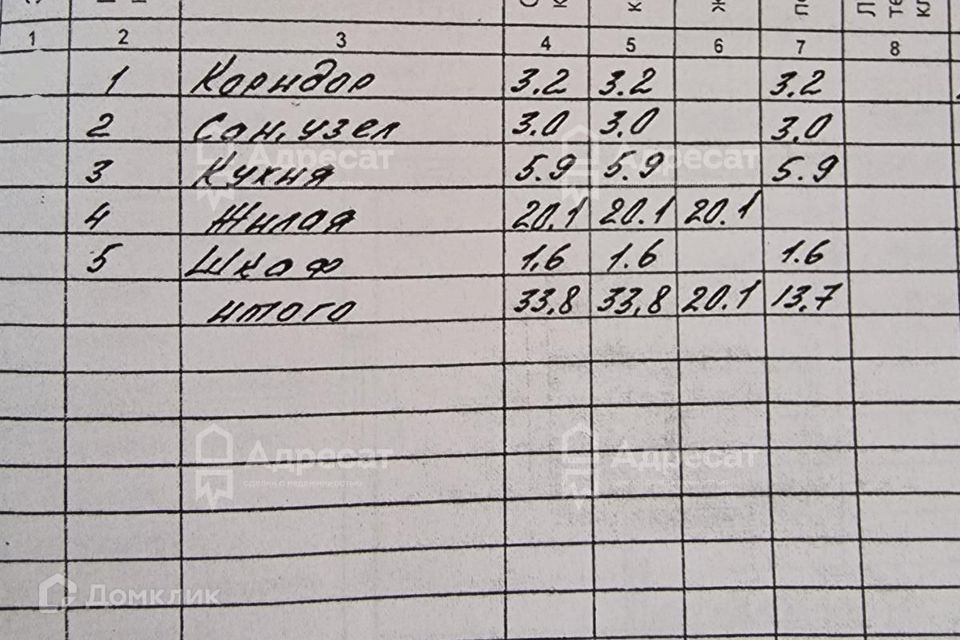 1 2 3 4 5 6 7 8
1 Коридор 3.2 3.2 3.2
2 Сан. узел 3.0 3.0 3.0
3 Кухня 5.9 5.9 5.9
4 Жилая 20.1 20.1 20.1
5 Шкаф 1.6 1.6 1.6
итого 33.8 33.8 20.1 13.7
Адресат Адресат
Адресат Адресат
сделки с недвижимостью
Домклик